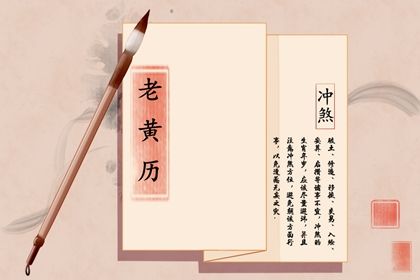 老黄历
冲煞
破土、修造、移徙、嫁娶、入殓、
安葬、启攒等诸事不宜，冲煞的
生肖年岁，应该尽量避讳，并且
注意冲煞方位，避免朝该方面行
事，以免遭遇无妄之灾。